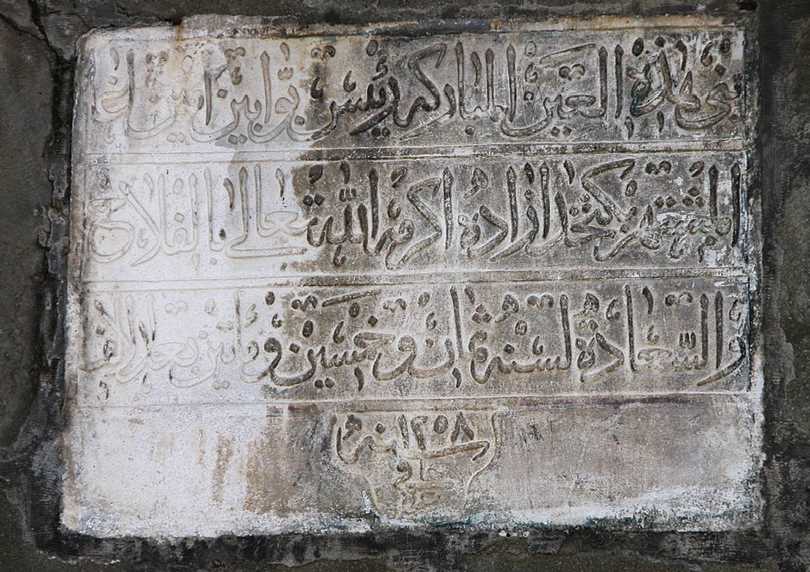 بنى هذه العين المباركه رئيس بوابين امين اغا
المشتهر بكتخدا زاده اكرمه الله تعالى بالفلاح
والسعادة لسنة ثمان وخمسين ومأتين بعد الالف
سنة ١٢٥٨